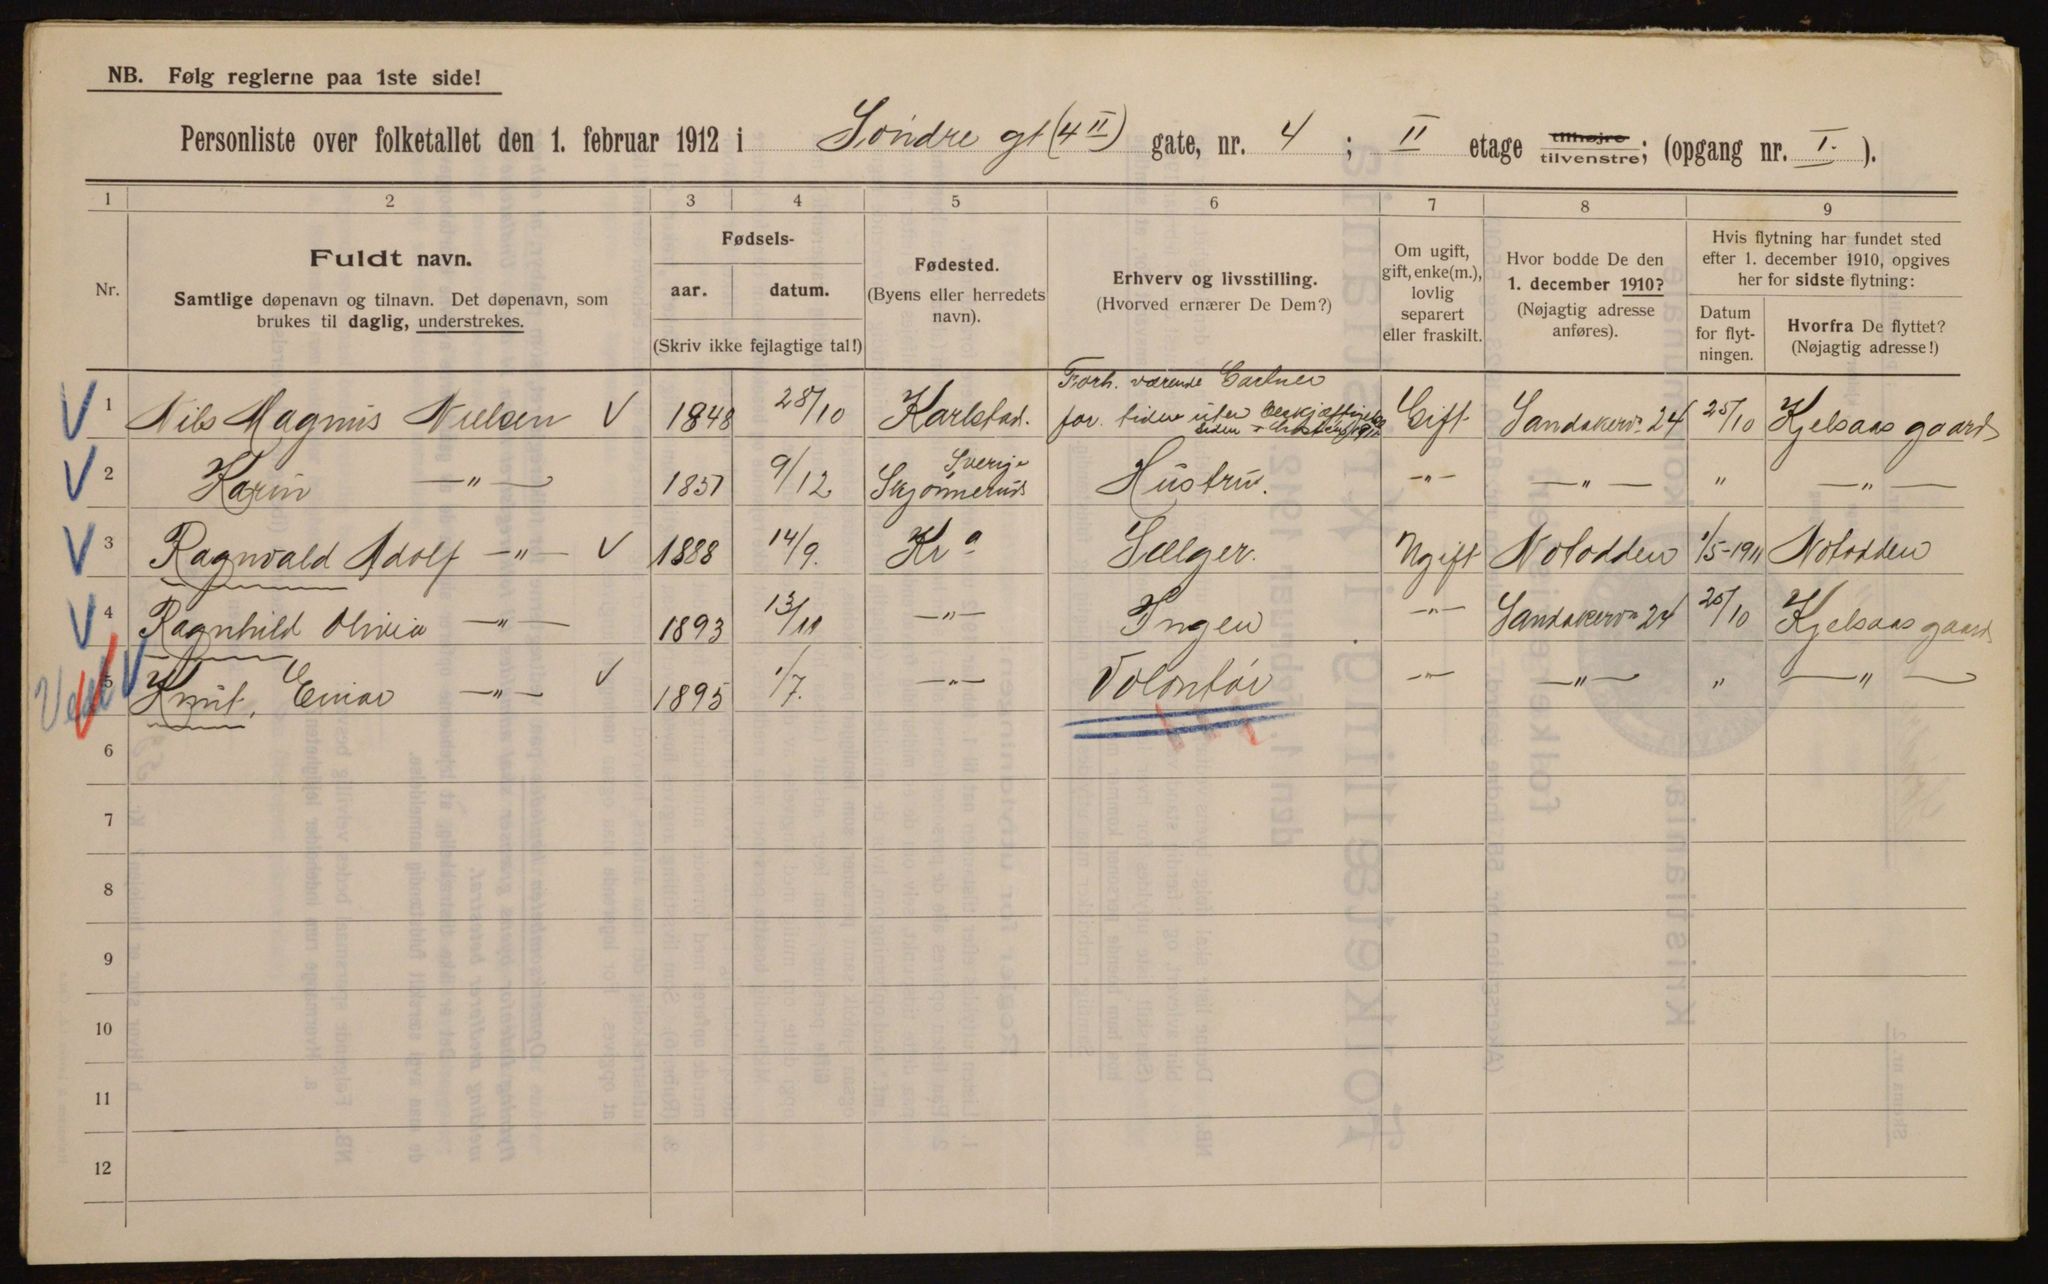 NB. Følg reglerne paa 1ste side!
Personliste over folketallet den 1. februar 1912 i Söndre gt (4 II) gate, nr. 4 ; II etage tilhøjre tilvenstre; (opgang nr. I. ).
1 2 3 4 5 6 7 8 9
Nr.
Fuldt navn.
Samtlige døpenavn og tilnavn. Det døpenavn, som
brukes til daglig, understrekes.
Fødsels-
aar. datum.
(Skriv ikke fejlagtige tal!)
Fødested.
(Byens eller herredets
navn).
Erhverv og livsstilling.
(Hvorved ernærer De Dem?)
Om ugift,
gift, enke(m.),
lovlig
separert
eller fraskilt.
Hvor bodde De den
1. december 1910?
(Nøjagtig adresse
anføres).
Hvis flytning har fundet sted
efter 1. december 1910, opgives
her for sidste flytning:
Datum
for flyt-
ningen.
Hvorfra De flyttet?
(Nøjagtig adresse!)
1 Nils Magnus Nielsen 1848 28/10 Karlstad. Forh. værende Gartner
for tiden uten siden Gift Sandakerv. 24 25/10 Kjelsaas gaard
2 Karin —"— 1857 9/12 Sverige
Hustru. —"— —"— " —"—
3 Ragnvald Adolf —"— 1888 14/9. Kra Sælger. Ugift Notodden 1/5-1911 Notodden
4 Ragnhild Olivia —"— 1893 13/11 —"— Ingen —"— Sandakerv. 24 25/10 Kjelsaas gaard
5 Knut, Einar —"— 1895 1/7. —"— Volontör —"— —"— " —"—
6
7
8
9
10
11
12